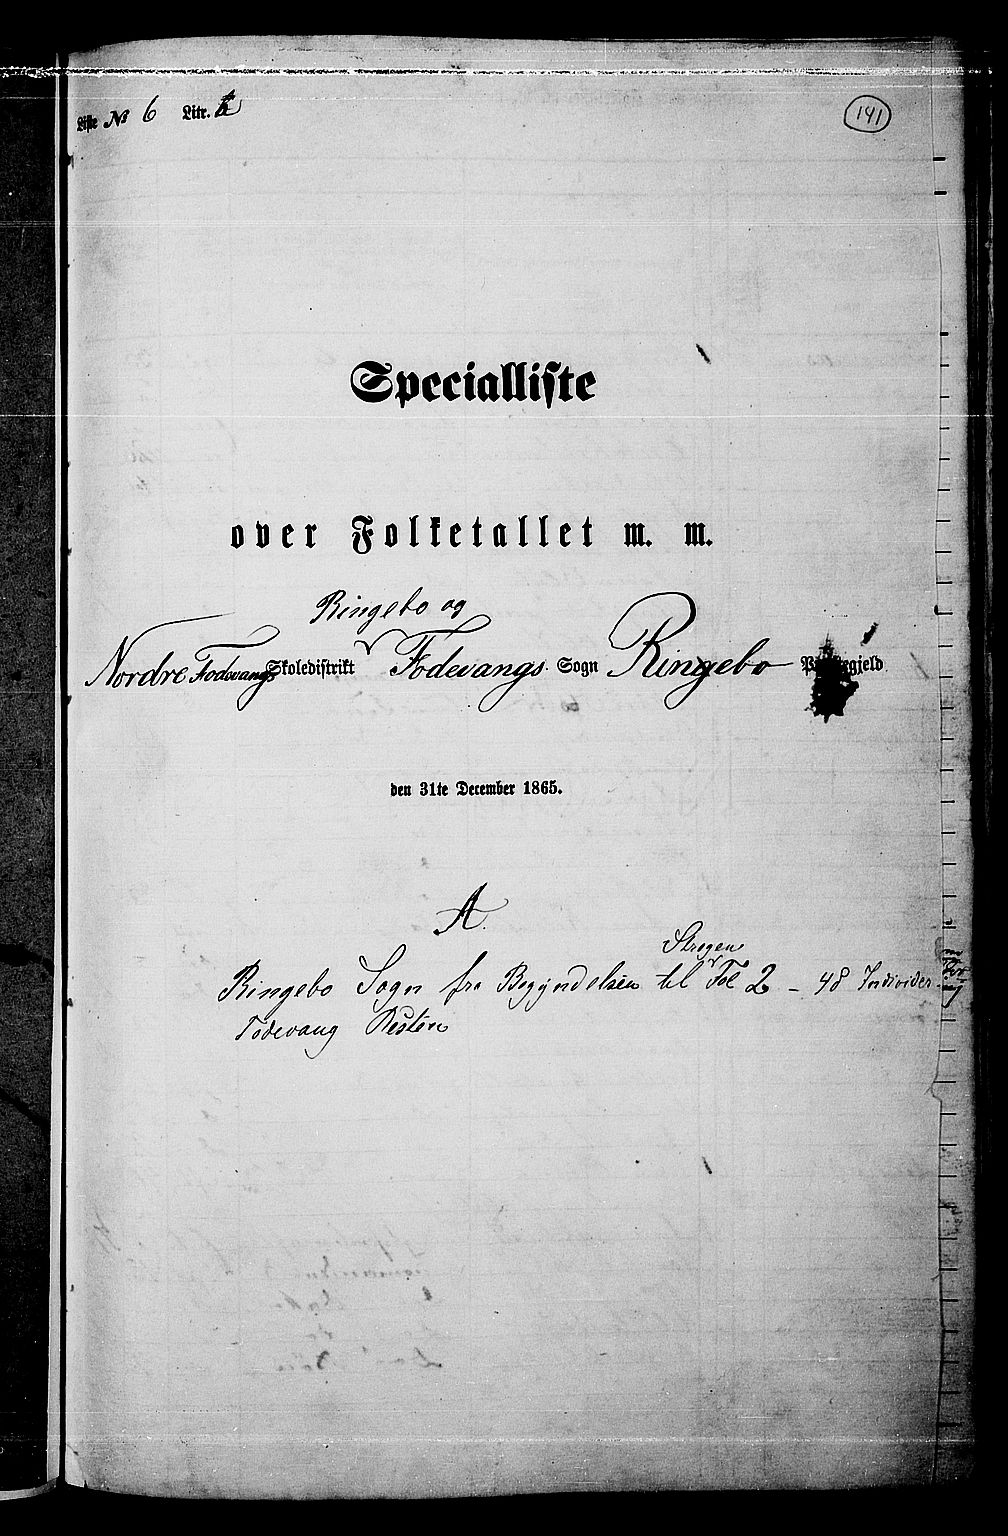 Liste No 6 Litr.
141
Specialliste
over Folketallet m. m.
Ringebo og
Nordre Fodevangs Skoledistrikt Fodevangs Sogn Ringebo Præstegjeld
den 31te December 1865.
A.
Stregen
Ringebo Sogn fra Begyndelsen til Fol 2 – 48 Individer
Fodevang Resten